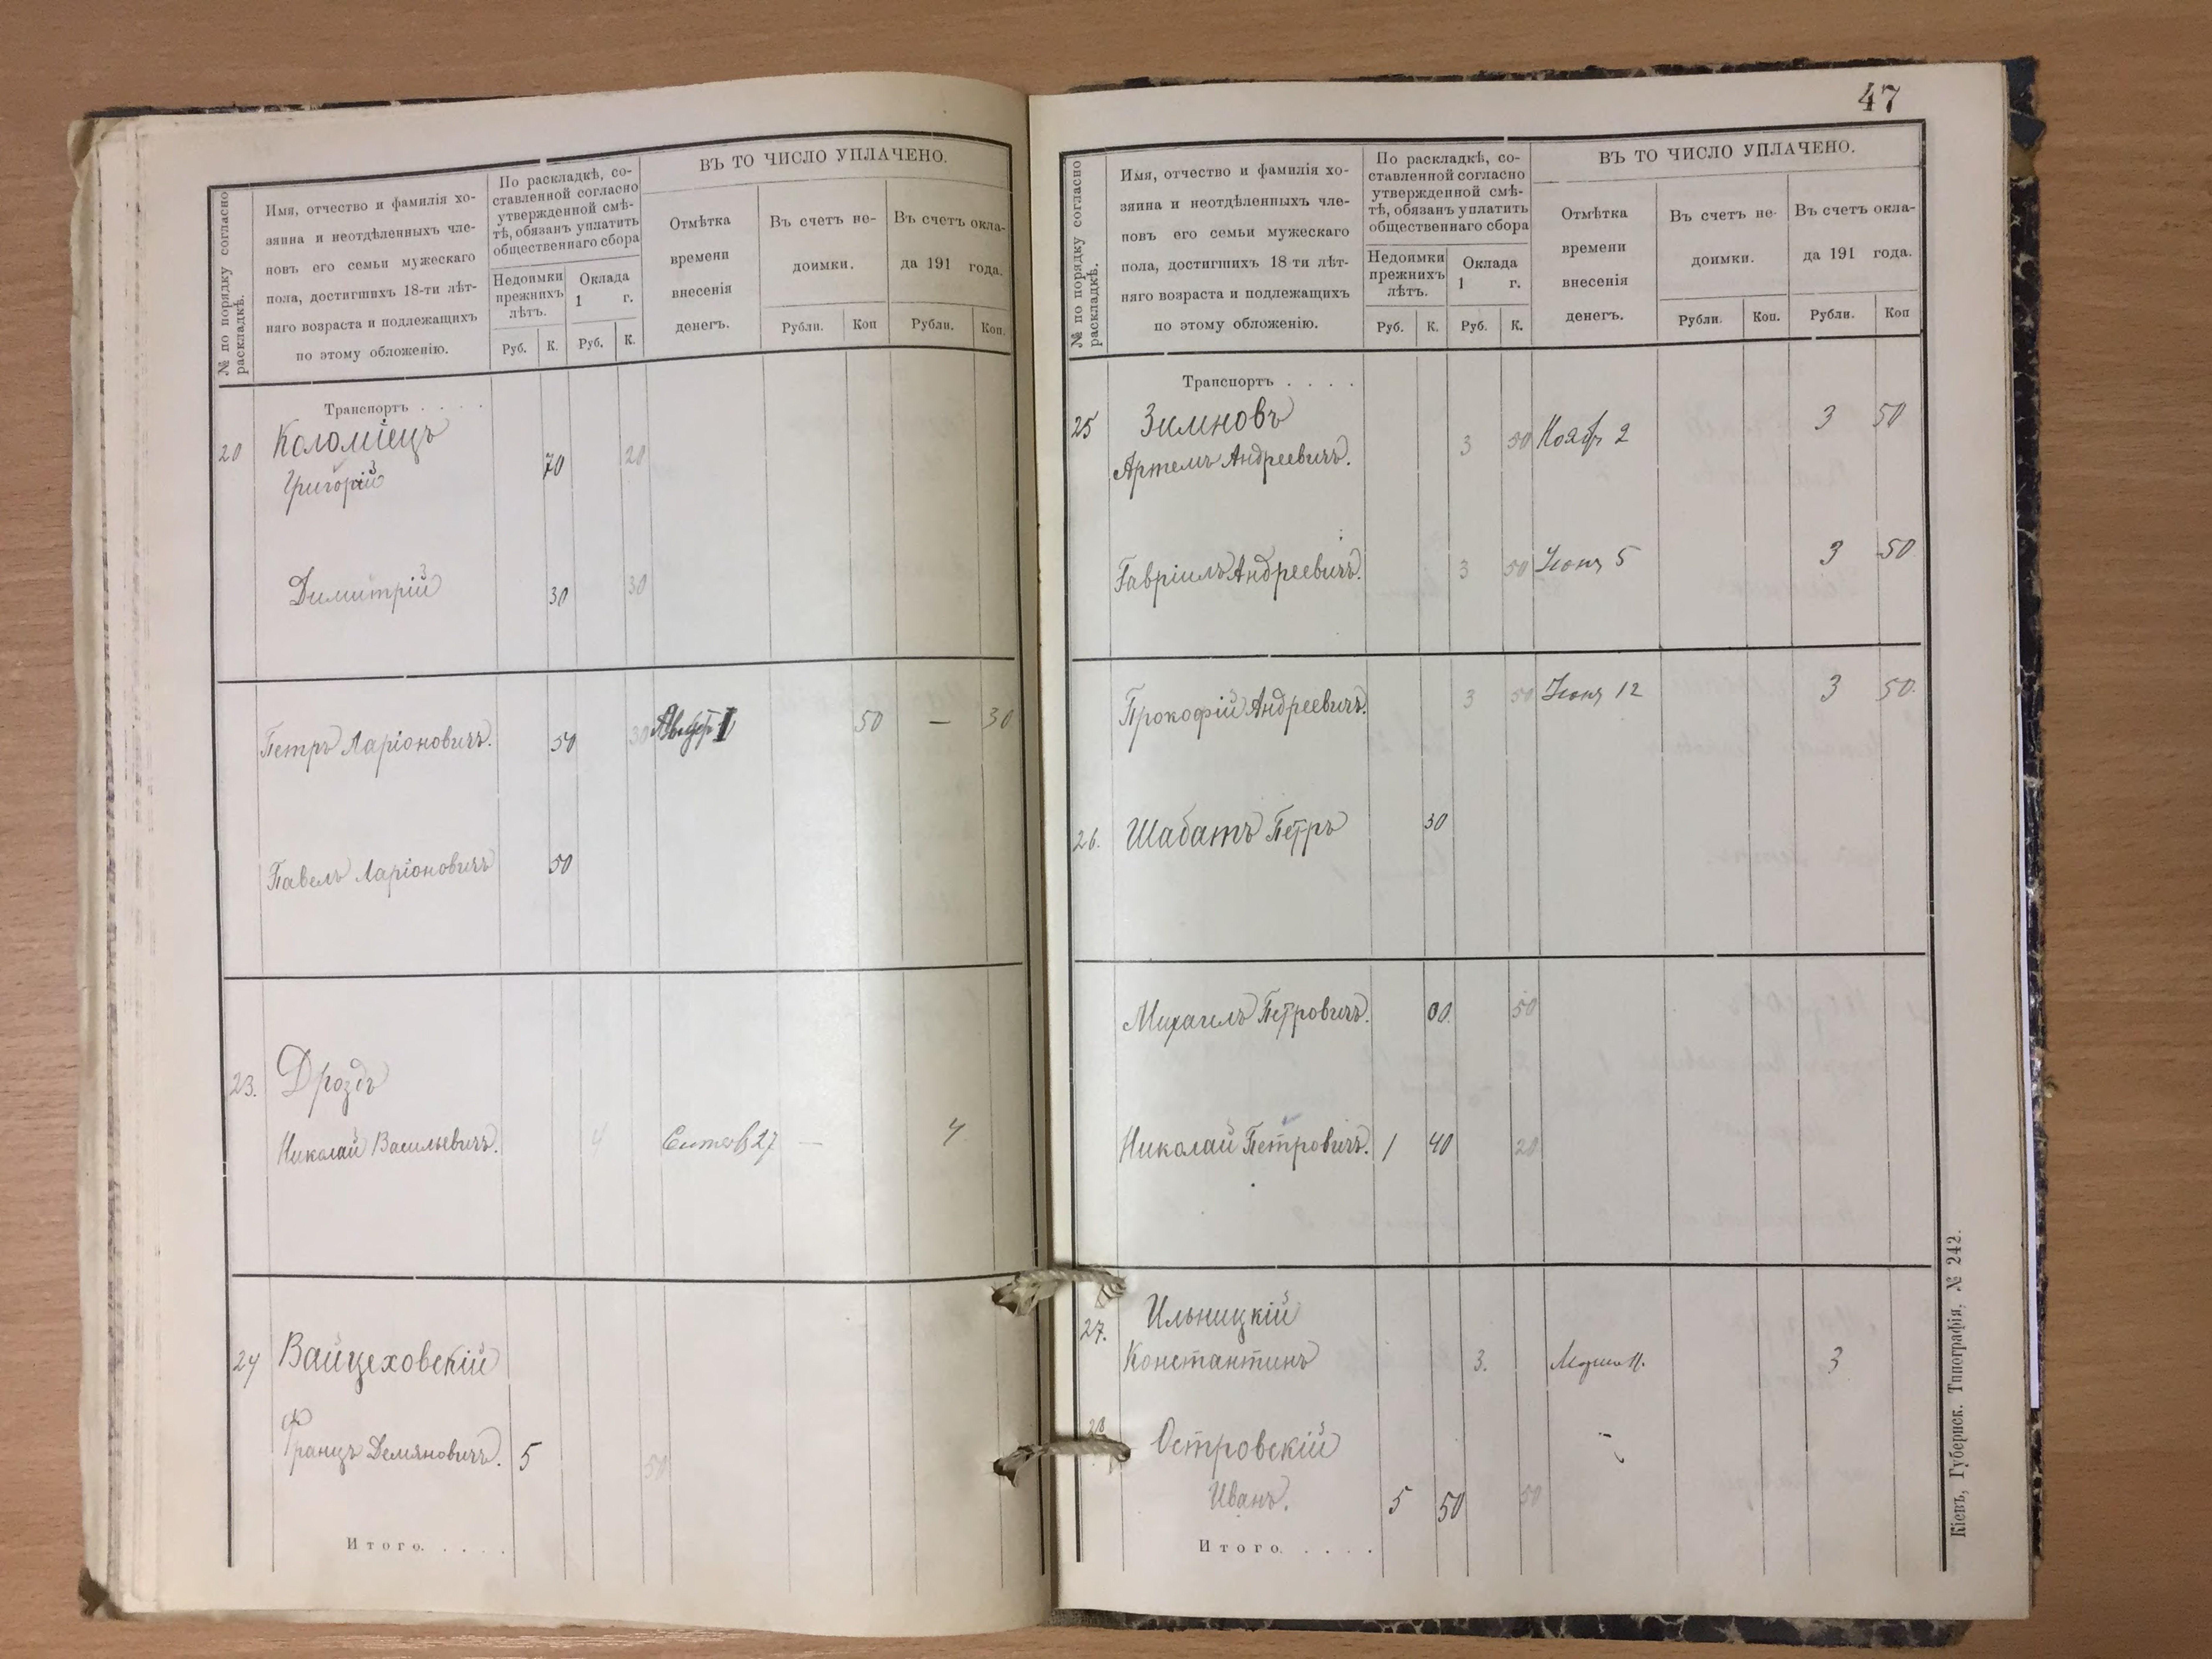 № по порядку согласно
раскладкѣ.
Имя, отчество и фамилія хо-
зяина и неотдѣленныхъ чле-
новъ его семьи мужескаго
пола, достигшихъ 18-ти лѣт-
няго возраста и подлежащихъ
по этому обложенію.
По раскладкѣ, со-
ставленной согласно
утвержденной смѣ-
тѣ, обязанъ уплатить
общественнаго сбора
Недоимки
прежнихъ
лѣтъ.
Оклада
1 г.
Руб. К. Руб. К.
ВЪ ТО ЧИСЛО УПЛАЧЕНО.
Отмѣтка
времени
внесенія
денегъ.
Въ счетъ не-
доимки.
Въ счетъ окла-
да 191 года.
Рубли. Коп Рубли. Коп.
Транспортъ . . . .
20 Коломіецъ
Григорій 70 20
Димитрій 30 30
Петръ Ларіоновичъ. 50 30 50 — 30
Павелъ Ларіоновичъ 50
23. Дроздъ
Николай Васильевичъ. 4 27 — 4
24 Вайцеховскій
Францъ Демяновичъ. 5 50
Итого. . . . .
47
№ по порядку согласно
раскладкѣ.
Имя, отчество и фамилія хо-
зяина и неотдѣленныхъ чле-
новъ его семьи мужескаго
пола, достигшихъ 18 ти лѣт-
няго возраста и подлежащихъ
по этому обложенію.
По раскладкѣ, со-
ставленной согласно
утвержденной смѣ-
тѣ, обязанъ уплатить
общественнаго сбора
Недоимки
прежнихъ
лѣтъ.
Оклада
1 г.
Руб. К. Руб. К.
ВЪ ТО ЧИСЛО УПЛАЧЕНО.
Отмѣтка
времени
внесенія
денегъ.
Въ счетъ не-
доимки.
Въ счетъ окла-
да 191 года.
Рубли. Коп. Рубли. Коп
Транспортъ . . . .
25 Зимновъ
Артемъ Андреевичъ. 3 50 Нояб 2 3 50
Гавріилъ Андреевичъ. 3 50 Іюня 5 3 50
Прокофій Андреевичъ. 3 50 Іюня 12 3 50.
26. Шабатъ Петръ 30
Михаилъ Петровичъ. 50
Николай Петровичъ. 1 40 20
27. Ильницкій
Константинъ 3. 3
28 Островскій
Иванъ. 5 50 50
Итого. . . . .
Кіевъ, Губернск. Типографія, № 242.